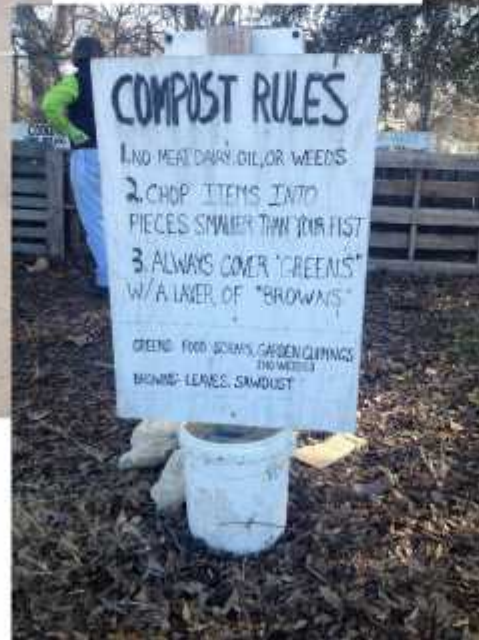 COMPOST RULES
1. NO MEAT, DAIRY, OIL, OR WEEDS
2. CHOP ITEMS INTO
PIECES SMALLER THAN YOUR FIST
3. ALWAYS COVER "GREENS"
W/A LAYER OF "BROWNS"
GREENS: FOOD SCRAPS, GARDEN CLIPPINGS
(NO WEEDS)
BROWNS: LEAVES, SAWDUST